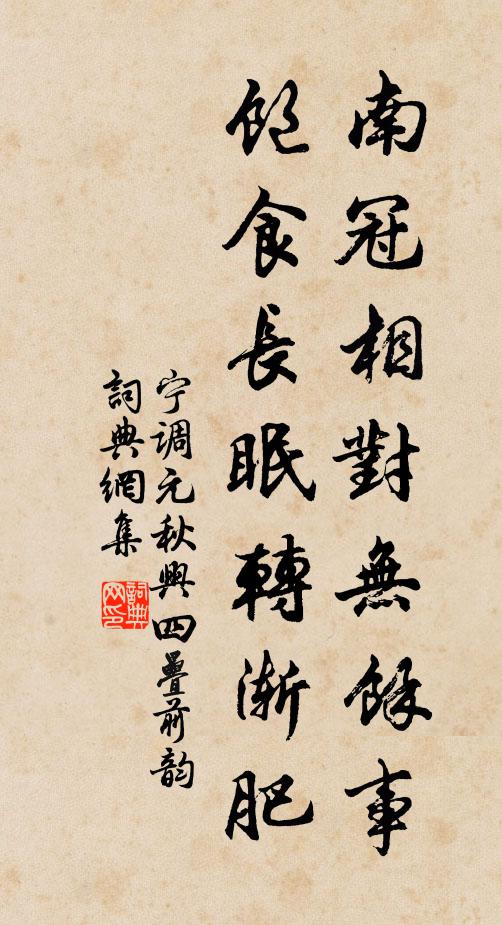 南冠相對無餘事
飽食長眠轉漸肥
宁調元秋興四疊前韵
詞典網集
詞典网印